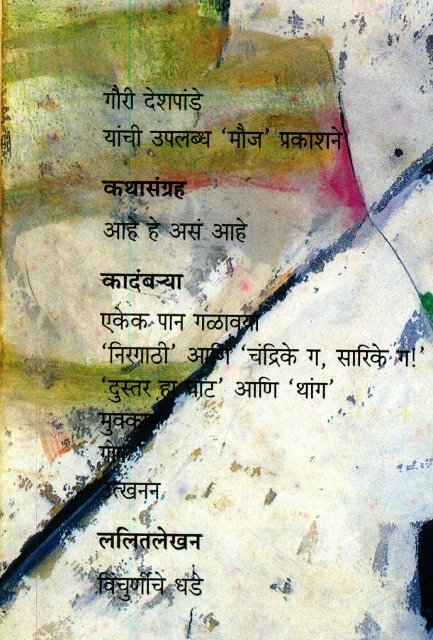 गौरी देशपांडे
यांची उपलब्ध ‘मौज’ प्रकाशने
कथासंग्रह
आहे हे असं आहे
कादंबऱ्या
एकेक पान गळावया
‘निरगाठी’ आणि ‘चंद्रिके ग, सारिके ग!’
‘दुस्तर हा घाट’ आणि ‘थांग’
मुक्काम
उत्खनन
ललितलेखन
विंचुर्णीचे धडे